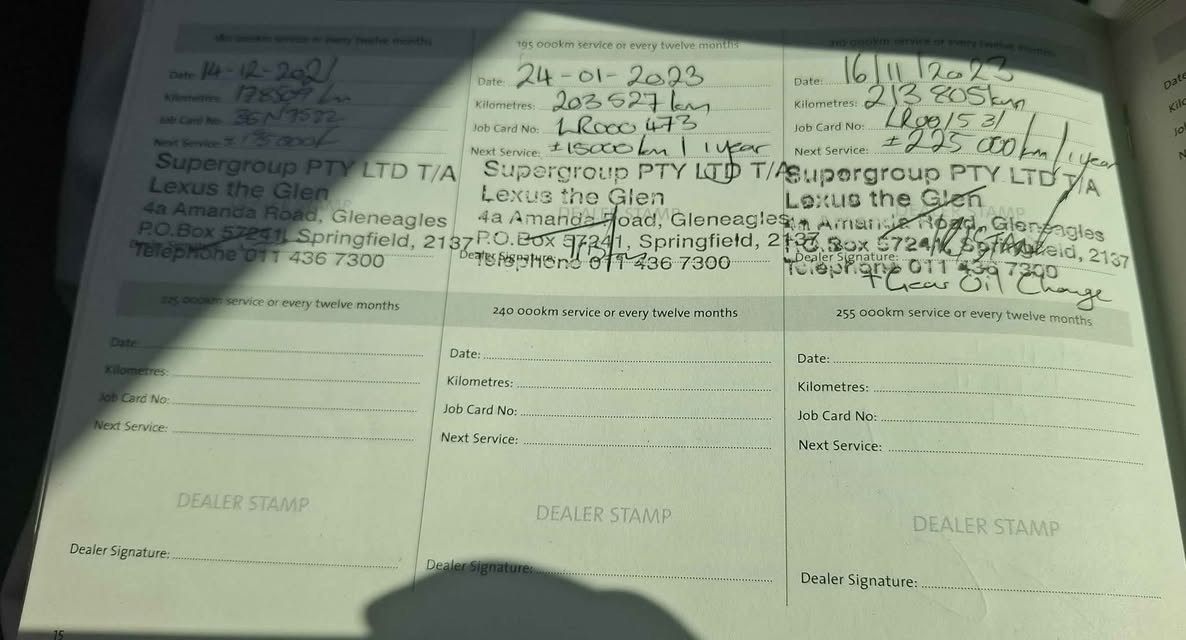 180 000km service or every twelve months
Date: 14-12-2021
Kilometres: 178509 km
Job Card No:
Next Service: ± 195000km
Supergroup PTY LTD T/A
Lexus the Glen
4a Amanda Road, Gleneagles
P.O.Box 57241, Springfield, 2137
Telephone 011 436 7300
195 000km service or every twelve months
Date: 24-01-2023
Kilometres: 203 527 km
Job Card No: LR000 473
Next Service: ±15000 km / 1 year
Supergroup PTY LTD T/A
Lexus the Glen
4a Amanda Road, Gleneagles
P.O.Box 57241, Springfield, 2137
Dealer Signature:
Telephone 011 436 7300
210 000km service or every twelve months
Date: 16/11/2023
Kilometres: 213 805km
Job Card No: LR001531
Next Service: ±225 000km / 1 year
Supergroup PTY LTD T/A
Lexus the Glen
4a Amanda Road, Gleneagles
P.O.Box 57241, Springfield, 2137
Dealer Signature:
Telephone 011 436 7300
+ Gear Oil Change
225 000km service or every twelve months
Date:
Kilometres:
Job Card No:
Next Service:
DEALER STAMP
Dealer Signature:
240 000km service or every twelve months
Date:
Kilometres:
Job Card No:
Next Service:
DEALER STAMP
Dealer Signature:
255 000km service or every twelve months
Date:
Kilometres:
Job Card No:
Next Service:
DEALER STAMP
Dealer Signature:
15